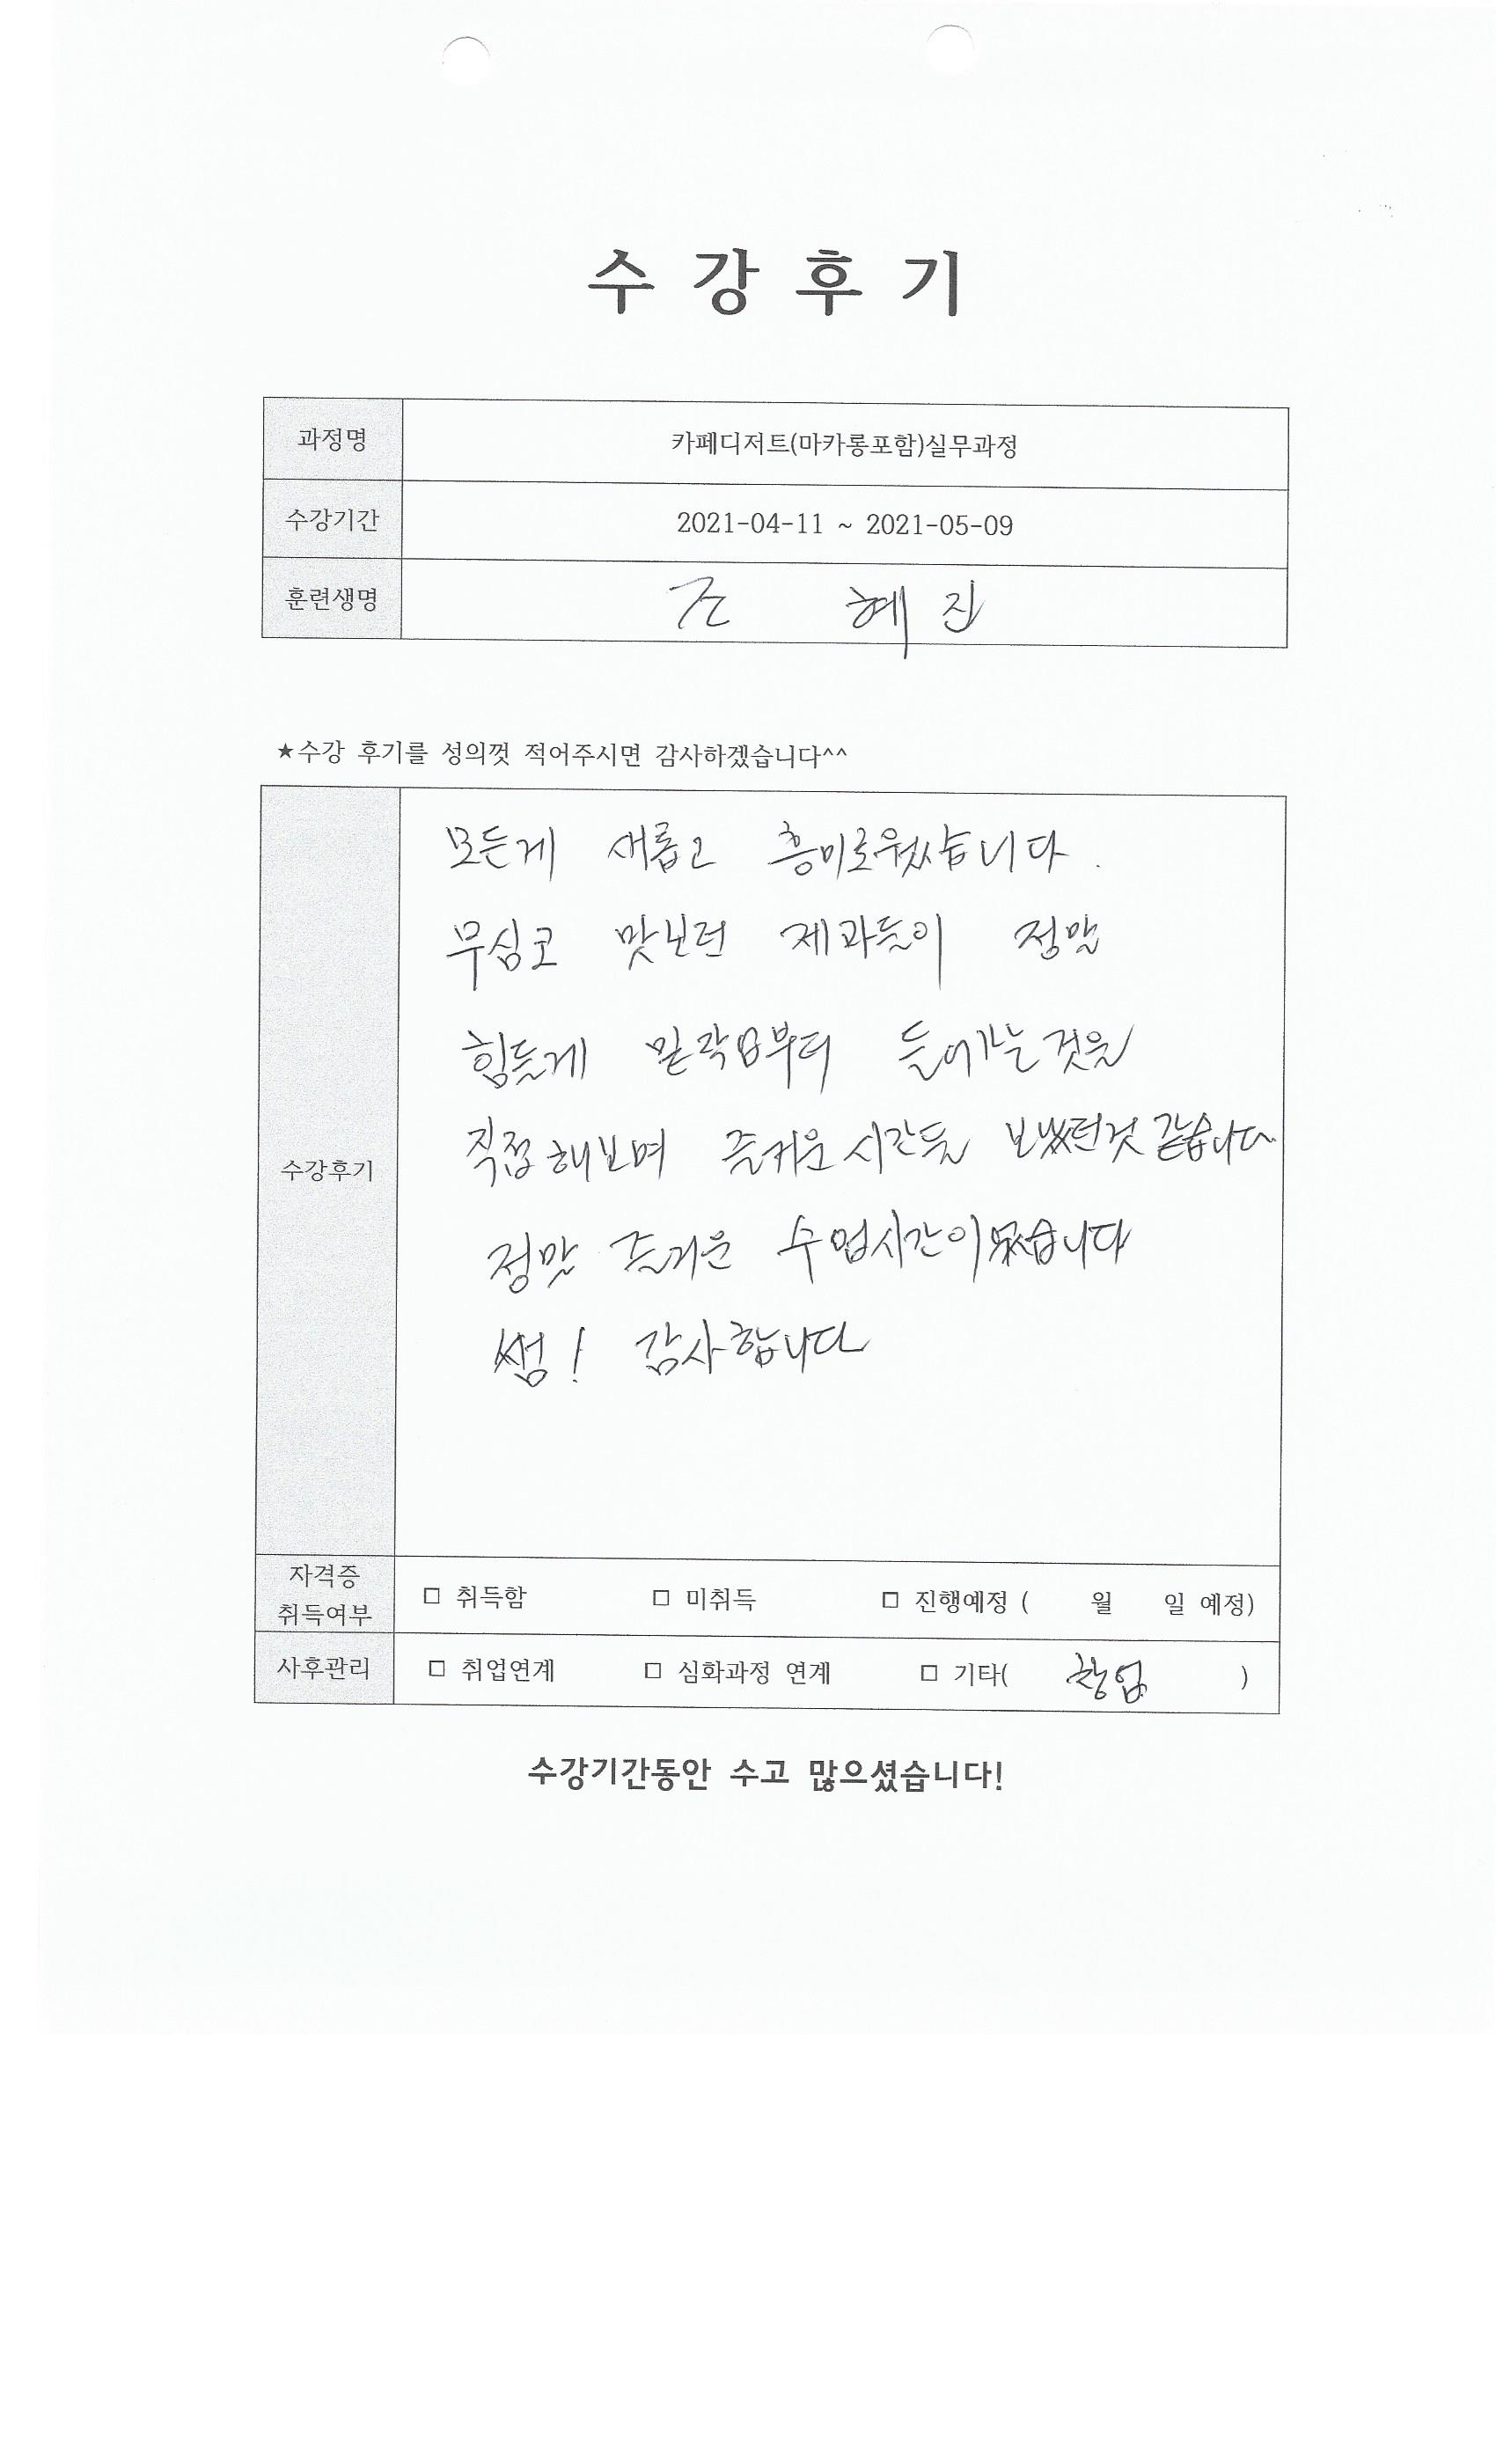 수 강 후 기
과정명 카페디저트(마카롱포함)실무과정
수강기간 2021-04-11 ~ 2021-05-09
훈련생명 조 혜 진
★수강 후기를 성의껏 적어주시면 감사하겠습니다^^
수강후기
모든게 새롭고 흥미로웠습니다.
무심코 맛보던 제과들이 정말
힘들게 밑작업부터 들어가는것을
직접해보며 즐거운시간들 보냈던것 같습니다
정말 즐거운 수업시간이였습니다
쌤! 감사합니다
자격증 취득여부 □ 취득함 □ 미취득 □ 진행예정 ( 월 일 예정)
사후관리 □ 취업연계 □ 심화과정 연계 □ 기타( 창업 )
수강기간동안 수고 많으셨습니다!